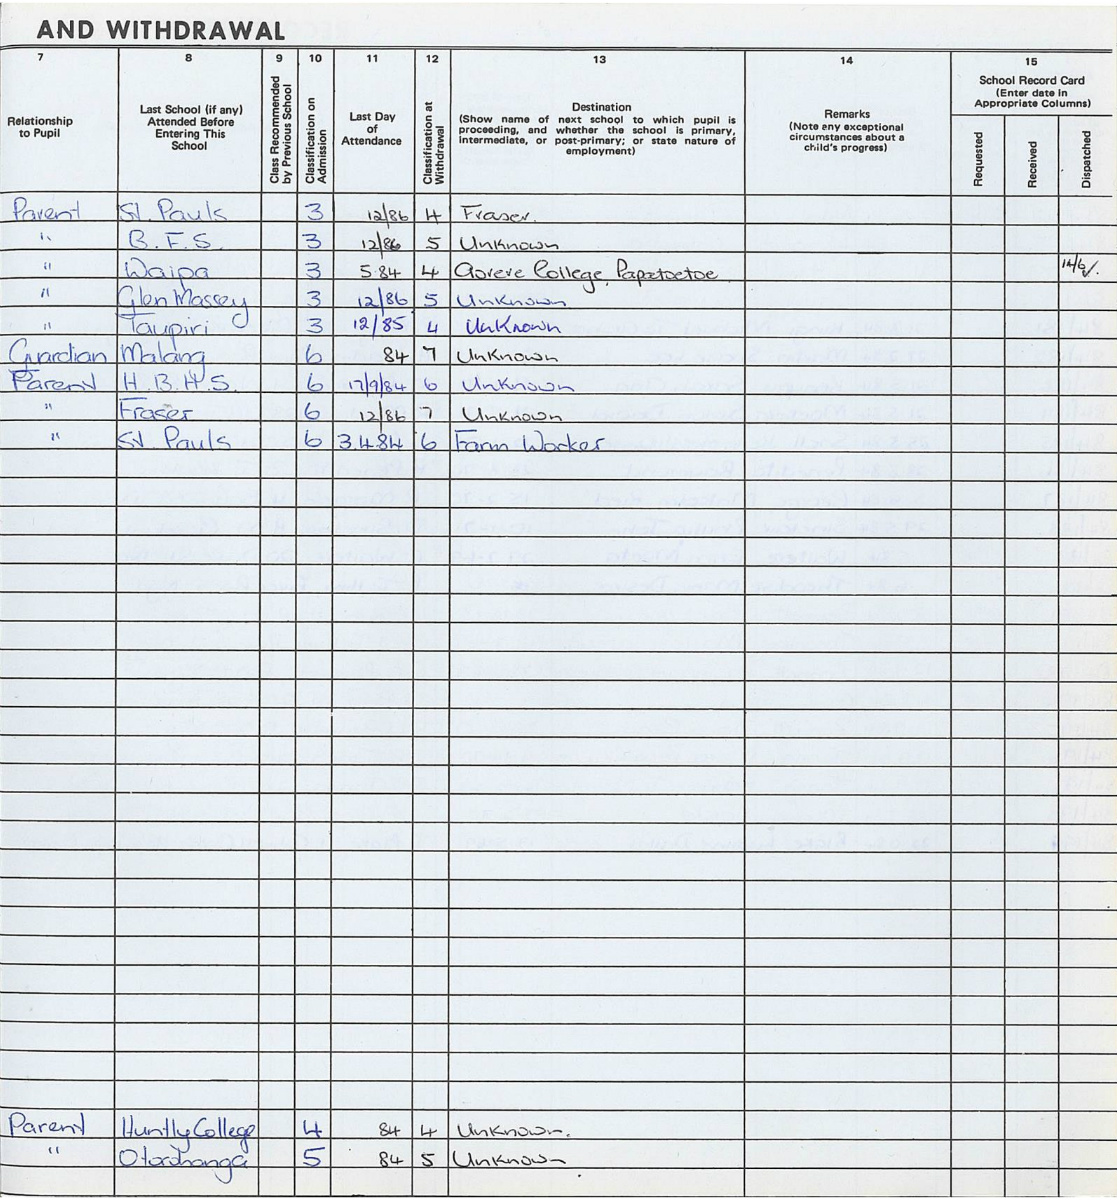 AND WITHDRAWAL
7 8 9 10 11 12 13 14 15
Relationship to Pupil
Last School (if any) Attended Before Entering This School
Class Recommended by Previous School
Classification on Admission
Last Day of Attendance
Classification at Withdrawal
Destination
(Show name of next school to which pupil is proceeding, and whether the school is primary, intermediate, or post-primary; or state nature of employment)
Remarks
(Note any exceptional circumstances about a child's progress)
School Record Card
(Enter date in Appropriate Columns)
Requested
Received
Dispatched
Parent St. Pauls 3 12/86 4 Fraser.
" B.F.S. 3 12/86 5 Unknown
" Waipa 3 5.84 4 College, Papatoetoe
" Glen Massey 3 12/86 5 Unknown
" Taupiri 3 12/85 4 Unknown
Guardian Malang 6 84 7 Unknown
Parent H.B.H.S. 6 17/9/84 6 Unknown
" Fraser 6 12/86 7 Unknown
" St. Pauls 6 3.4.84 6 Farm Worker
Parent Huntly College 4 84 4 Unknown.
" Otorohanga 5 84 5 Unknown